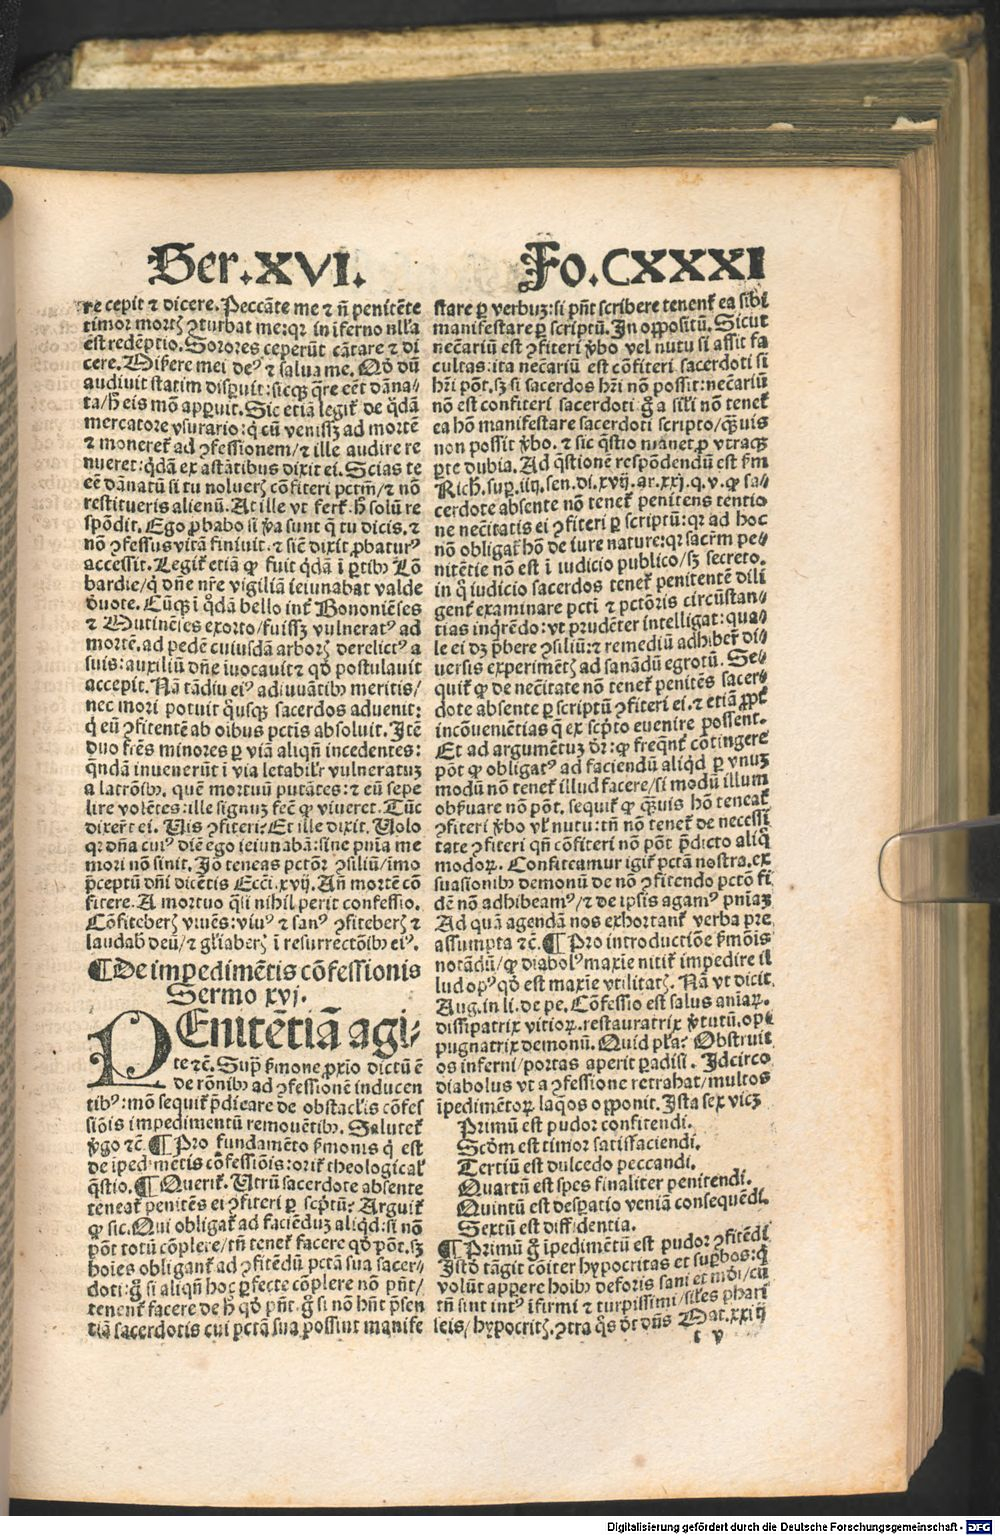 Ser.XVI.
Fo.CXXXI
re cepit ⁊ dicere. Peccãte me ⁊ ñ penitẽte
timor mortꝭ ꝯturbat me: qꝛ in iferno nlľa
est redẽptio. Sorores ceperũt cãtare ⁊ di
cere. Miẜere mei deꝰ ⁊ salua me. Qď dũ
audiuit statim disꝑuit: sicqꝫ q̃re eẽt dãna⸗
ta/h̃ eis mõ apꝑuit. Sic etiã legiť de q̃dã
mercatore vsurario: q̇ cũ venissꝫ ad mortẽ
⁊ monereť ad ꝯfessionem/⁊ ille audire re
nueret: q̇dã ex astãtibus dixit ei. Scias te
eẽ dãnatũ si tu nolueꝭ cõfiteri pctm̃/⁊ nõ
restitueris alienũ. At ille vt ferť. h̃ solũ re
spõdit. Ego ꝓbabo si ꝟa sunt q̃ tu dicis. ⁊
nõ ꝯfessus vitã finiuit. ⁊ sic̃ dixit ꝓbaturꝰ
accessit. Legiť etiã ꝙ fuit q̇dã ĩ ꝑtibꝰ Lõ
bardie/q̇ dñe nr̃e vigiliã ieiunabat valde
ďuote. Cũqꝫ ĩ q̇dã bello inť Bononiẽses
⁊ Mutinẽses exorto/fuissꝫ vulneratꝰ ad
mortẽ. ad pedẽ cuiusdã arboꝭ derelictꝰ a
suis: auxiliũ dñe iuocauit ⁊ qď postulauit
accepit. Nã tãdiu eiꝰ adiuuãtibꝰ meritis/
nec mori potuit q̇usqꝫ sacerdos aduenit:
q̇ eũ ꝯfitentẽ ab oibus pctis absoluit. Itẽ
duo fr̃es minores ꝑ viã aliqñ incedentes:
q̃ndã inuenerũt ĩ via letabiľr vulneratuꝫ
a latrõibꝰ. quẽ mortuũ putãtes: ⁊ eũ sepe
lire volẽtes: ille signuꝫ fec̃ ꝙ viueret. Tũc
dixer̃t ei. Vis ꝯfiteri? Et ille dixit. Volo
qꝛ dña cuiꝰ diẽ ego ieiunabã: sine pñia me
mori nõ sinit. Jõ teneas pctõr ꝯsiliũ/imo
p̃ceptũ dñi dicẽtis Ecci. xvij. Añ mortẽ cõ
fitere. A mortuo q̃si nihil perit confessio.
Cõfitebeꝭ viuẽs: viuꝰ ⁊ sanꝰ ꝯfitebeꝭ ⁊
laudaƀ deũ/⁊ gľiabeꝭ ĩ resurrectõibꝰ eiꝰ.
¶De impedimẽtis cõfessionis
Sermo xvj.
PEnitẽtiã agi⸗
te ⁊c̃. Suꝑ ẜmone ꝓxĩo dictũ ẽ
de rõnibꝰ ad ꝯfessionẽ inducen
tibꝰ: mõ sequiť p̃dicare de obstacľis cõfes
siõis impedimentũ remouẽtibꝰ. Saluteť
ꝟgo ⁊c̃. ¶Pro fundamẽto ẜmonis q̇ est
de ĩpedimẽtis cõfessiõis: oriť theologicaľ
q̃stio. ¶Queriť. Vtrũ sacerdote absente
teneať penitẽs ei ꝯfiteri ꝑ scp̃tũ? Arguiť
ꝙ sic. Qui obligať ad faciẽduꝫ aliq̇d: si nõ
põt totũ cõplere/tñ teneť facere qď põt. sꝫ
hoĩes obliganť ad ꝯfitẽdũ pctã sua sacer⸗
doti: g̃ si aliqñ hoc ꝑfecte cõplere nõ pñt/
tenenť facere de h̃ qď pñt. g̃ si nõ hñt p̃sen
tiã sacerdotis cui pctã sua possint manife
stare ꝑ verbuꝫ: si pñt scribere tenenť ea sibi
manifestare ꝑ scriptũ. In oppositũ. Sicut
nec̃ariũ est ꝯfiteri ꝟbo vel nutu si assit fa
cultas: ita nec̃ariũ est cõfiteri sacerdoti si
hr̃i põt. sꝫ si sacerdos hr̃i nõ possit: nec̃ariũ
nõ est confiteri sacerdoti g̃ a siľi nõ teneť
ea hõ manifestare sacerdoti scripto/q̃ꝫuis
non possit ꝟbo. ⁊ sic q̃stio manet ꝓ vtraqꝫ
ꝑte dubia. Ad q̃stionẽ respõdendũ est ẜm
Rich. suꝑ. iiij. sen. di. xvij. ar. xxj. q. v. ꝙ sa⸗
cerdote absente nõ teneť penitens tentio
ne nec̃itatis ei ꝯfiteri ꝑ scriptũ: qꝛ ad hoc
nõ obligať hõ de iure nature: qꝛ sacr̃m pe⸗
nitẽtie nõ est ĩ iudicio publico/sꝫ secreto.
in q̇ iudicio sacerdos teneť penitentẽ dili
genť examinare pcti ⁊ pctõris circũstan⸗
tias inq̇rẽdo: vt prudẽter intelligat: qua⸗
le ei dꝫ p̃bere ꝯsiliũ: ⁊ remediũ adhiber̃ di⸗
uersis experimẽtꝭ ad sanãdũ egrotũ. Se⸗
quiť ꝙ de nec̃itate nõ teneť penitẽs sacer⸗
dote absente ꝑ scriptũ ꝯfiteri ei. ⁊ etiã ꝓpť
incõueniẽtias q̃ ex scp̃to euenire possent.
Et ad argumẽtuꝫ ďr: ꝙ freq̃nť cõtingere
põt ꝙ obligatꝰ ad faciendũ aliq̇d ꝑ vnuꝫ
modũ nõ teneť illud facere/si modũ illum
obẜuare nõ põt. sequiť ꝙ q̃ꝫuis hõ teneať
ꝯfiteri ꝟbo vľ nutu: tñ nõ teneť de necessi
tate ꝯfiteri qñ cõfiteri nõ põt p̃dicto aliq̇
modoꝝ. Confiteamur igiť pctã nostra. ex
suasionibꝰ demonũ de nõ ꝯfitendo pctõ fi
dẽ nõ adhibeamꝰ/⁊ de ipsis agamꝰ pñiaꝫ
Ad quã agendã nos exhortanť verba pre
assumpta ⁊c̃. ¶Pro introductiõe ẜmõis
notãdũ/ꝙ diabolꝰ maxie nitiť impedire il
lud opꝰ qď est maxie vtilitatꝭ. Nã vt dicit
Aug. in li. de pe. Cõfessio est salus aniaꝝ.
dissipatrix vitioꝝ. restauratrix ꝟtutũ. op⸗
pugnatrix demonũ. Quid pľa? Obstruit
os inferni/portas aperit ꝑadisi. Idcirco
diabolus vt a ꝯfessione retrahat/multos
ĩpedimẽtoꝝ laq̃os opponit. Ista sex vicꝫ
Primũ est pudor confitendi.
Scďm est timor satisfaciendi.
Tertiũ est dulcedo peccandi.
Quartũ est spes finaliter penitendi.
Quintũ est desꝑatio veniã consequẽdi.
Sextũ est diffidentia.
¶Primũ g̃ ĩpedimẽtũ est pudor ꝯfitẽdi
Istď tãgit cõiter hypocritas et suꝑbos: q̇
volũt apꝑere hoibꝰ deforis sani et mõi/cũ
tñ sint intꝰ ĩfirmi ⁊ turpissimi/siľes phari
seis/hypocritꝭ. ꝯtra q̃s ďt dñs Mat. xxiij
t v
Digitalisierung gefördert durch die Deutsche Forschungsgemeinschaft - DFG